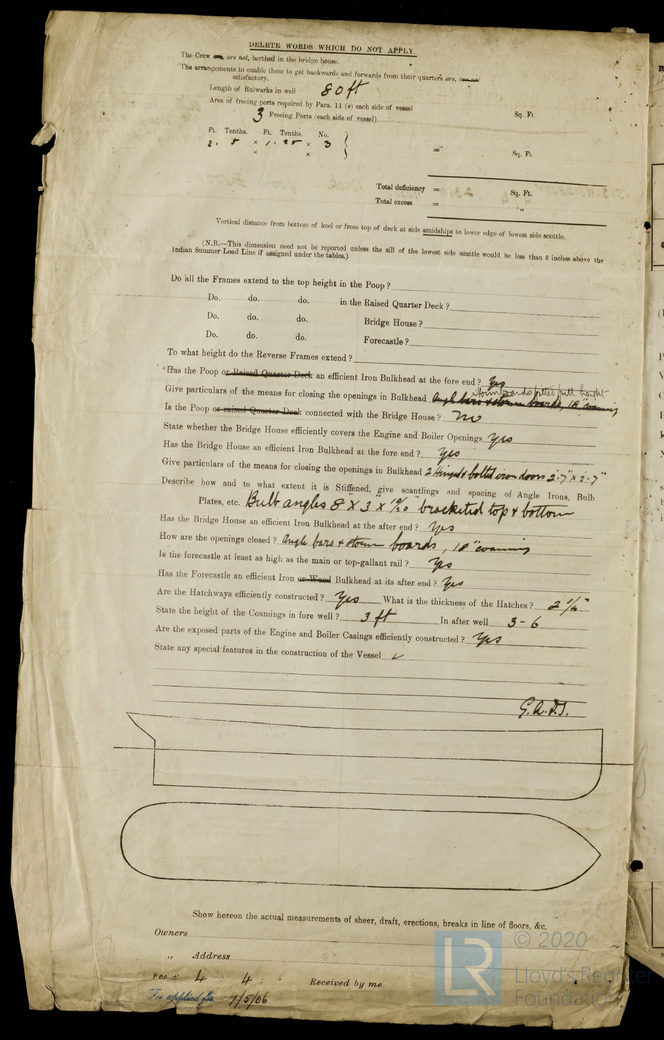 DELETE WORDS WHICH DO NOT APPLY.
The Crew are, are not, berthed in the bridge house.
The arrangements to enable them to get backwards and forwards from their quarters are,
satisfactory.
Length of Bulwarks in well 80 ft
Area of freeing ports required by Para. 11 (e) each side of vessel
3 Freeing Ports (each side of vessel) Sq. Ft.
Ft. Tenths. Ft. Tenths. No.
× × 3 = Sq. Ft.
×
Total deficiency = Sq. Ft.
Total excess = „
Vertical distance from bottom of keel or from top of deck at side amidships to lower edge of lowest side scuttle.
(N.B.—This dimension need not be reported unless the sill of the lowest side scuttle would be less than 6 inches above the
Indian Summer Load Line if assigned under the tables.)
Do all the Frames extend to the top height in the Poop?
Do. do. do. in the Raised Quarter Deck?
Do. do. do. Bridge House?
Do. do. do. Forecastle?
To what height do the Reverse Frames extend?
Has the Poop or Raised Quarter Deck an efficient Iron Bulkhead at the fore end? Yes
Storm boards fitted full height
Give particulars of the means for closing the openings in Bulkhead Angle bars & storm boards, 18" coaming
Is the Poop or raised Quarter Deck connected with the Bridge House? No
State whether the Bridge House efficiently covers the Engine and Boiler Openings Yes
Has the Bridge House an efficient Iron Bulkhead at the fore end? Yes
Give particulars of the means for closing the openings in Bulkhead 2 Hinged & bolted iron doors 2'-7" × 2'-7"
Describe how and to what extent it is Stiffened, give scantlings and spacing of Angle Irons, Bulb
Plates, etc. Bulb angles 8" × 3" × bracketed top & bottom
Has the Bridge House an efficient Iron Bulkhead at the after end? Yes
How are the openings closed? Angle bars & storm boards, 18" coaming
Is the forecastle at least as high as the main or top-gallant rail? Yes
Has the Forecastle an efficient Iron or Wood Bulkhead at its after end? Yes
Are the Hatchways efficiently constructed? Yes What is the thickness of the Hatches? 2½"
State the height of the Coamings in fore well? 3 ft In after well 3-6
Are the exposed parts of the Engine and Boiler Casings efficiently constructed? Yes
State any special features in the construction of the Vessel ✓
Show hereon the actual measurements of sheer, draft, erections, breaks in line of floors, &c.
Owners
„ Address
Fee £ 4 4 : Received by me
Fee applied for 7/5/06
LR
© 2020
Lloyd's Register
Foundation